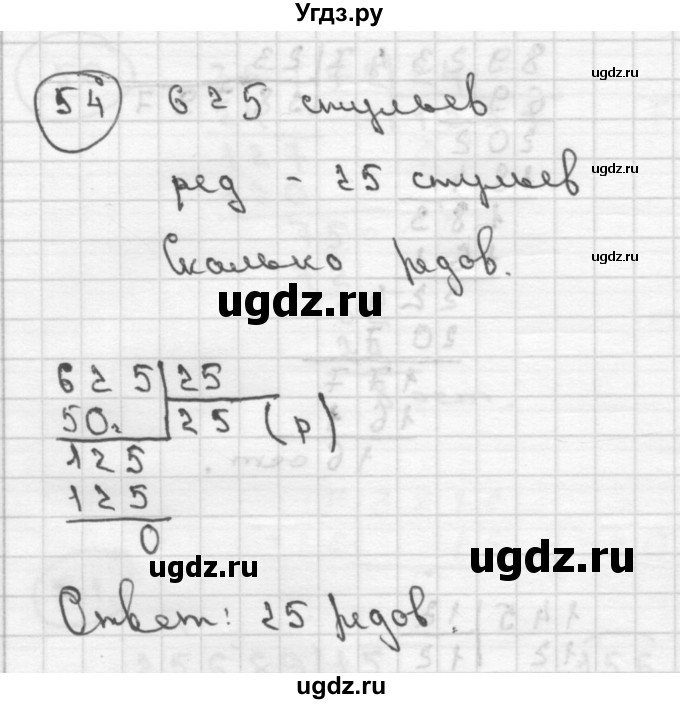 Угдз.ру
54 625 стульев
ugdz.ru
ред - 25 стульев
ugdz.ru
Сколько редов.
ugdz.ru
ugdz.ru
625 | 25
50 25 (р)
125
125
0
ugdz.ru
ugdz.ru
Ответ: 25 редов.
ugdz.ru